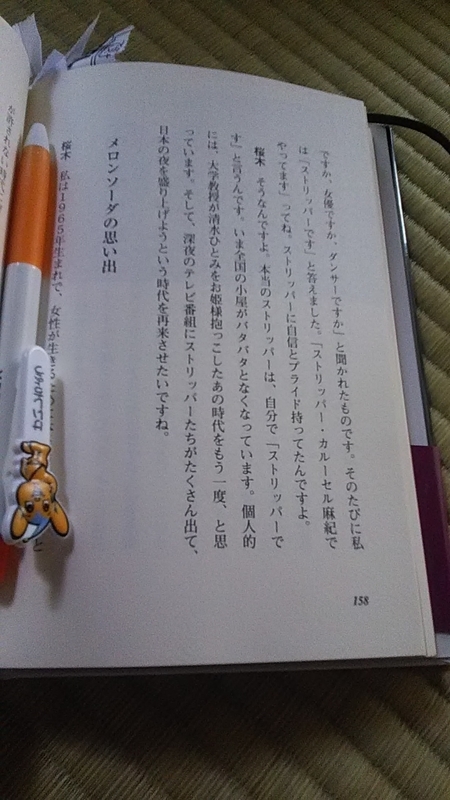 ですか、女優ですか、ダンサーですか」と聞かれたものです。そのたびに私
は「ストリッパーです」と答えました。「ストリッパー・カルーセル麻紀で
やってます」ってね。ストリッパーに自信とプライド持ってたんですよ。
桜木 そうなんですよ。本当のストリッパーは、自分で「ストリッパーで
す」と言うんです。いま全国の小屋がバタバタとなくなっています。個人的
には、大学教授が清水ひとみをお姫様抱っこしたあの時代をもう一度、と思
っています。そして、深夜のテレビ番組にストリッパーたちがたくさん出て、
日本の夜を盛り上げようという時代を再来させたいですね。
メロンソーダの思い出
桜木 私は1965年生まれで、女性が生
158